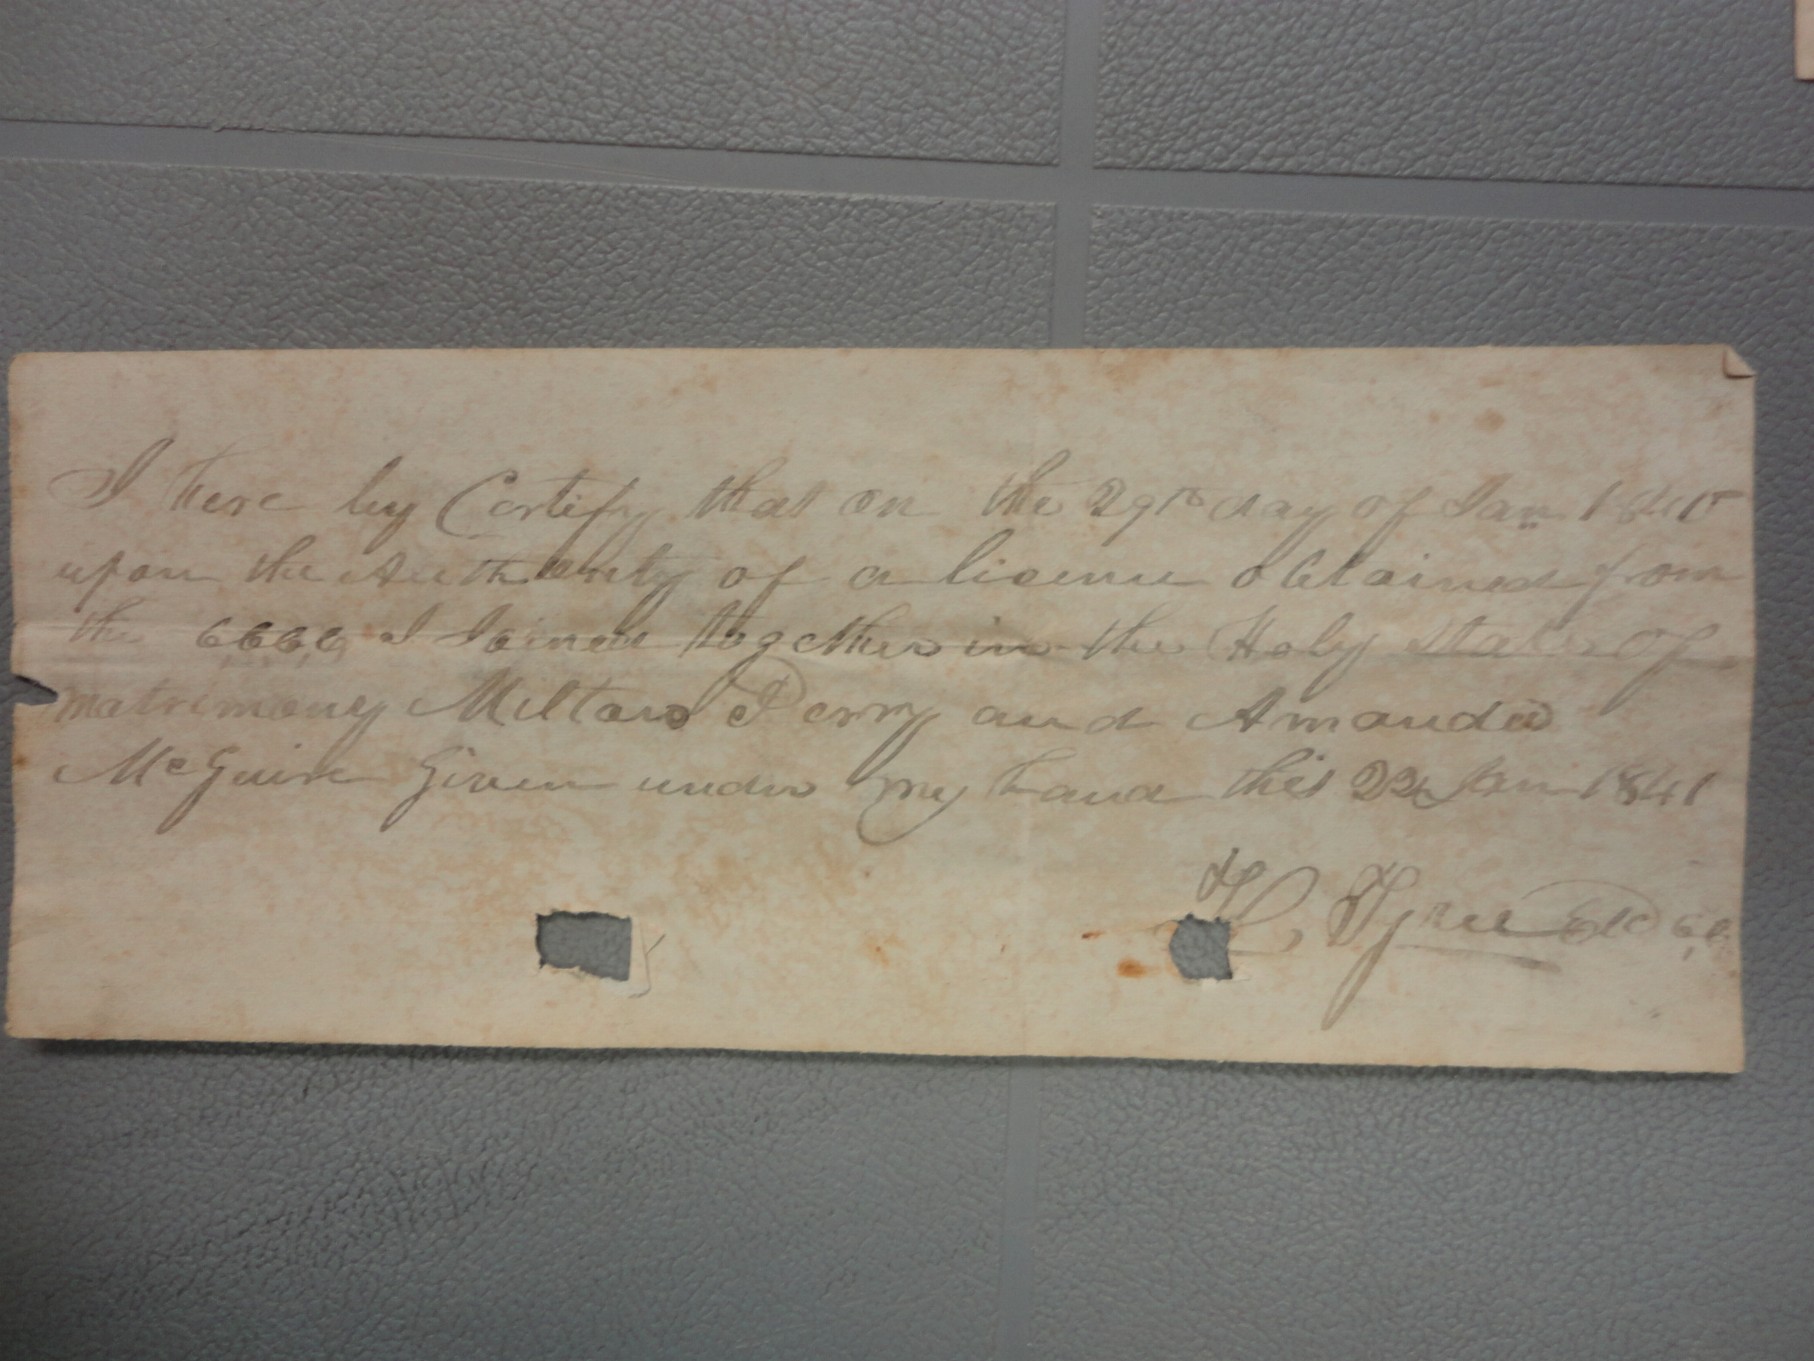 I here by Certify that on the 29th day of Jan
upon the Authority of a licence obtained from
the C.C.C.C I Joined together in the Holy State of
matrimony Milton Perry and Amanda
McGuire Given under my hand this Jan 1841
H Tyree